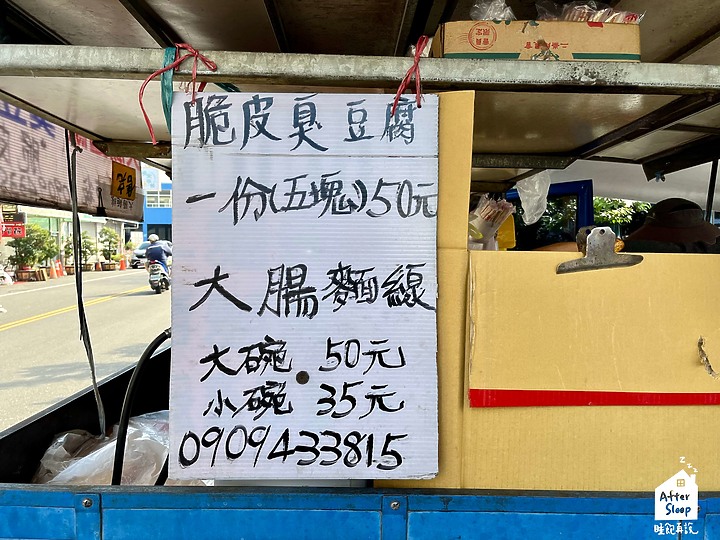 脆皮臭豆腐
一份(五塊)50元
大腸麵線
大碗 50元
小碗 35元
0909433815
After
Sleep
睡飽再說